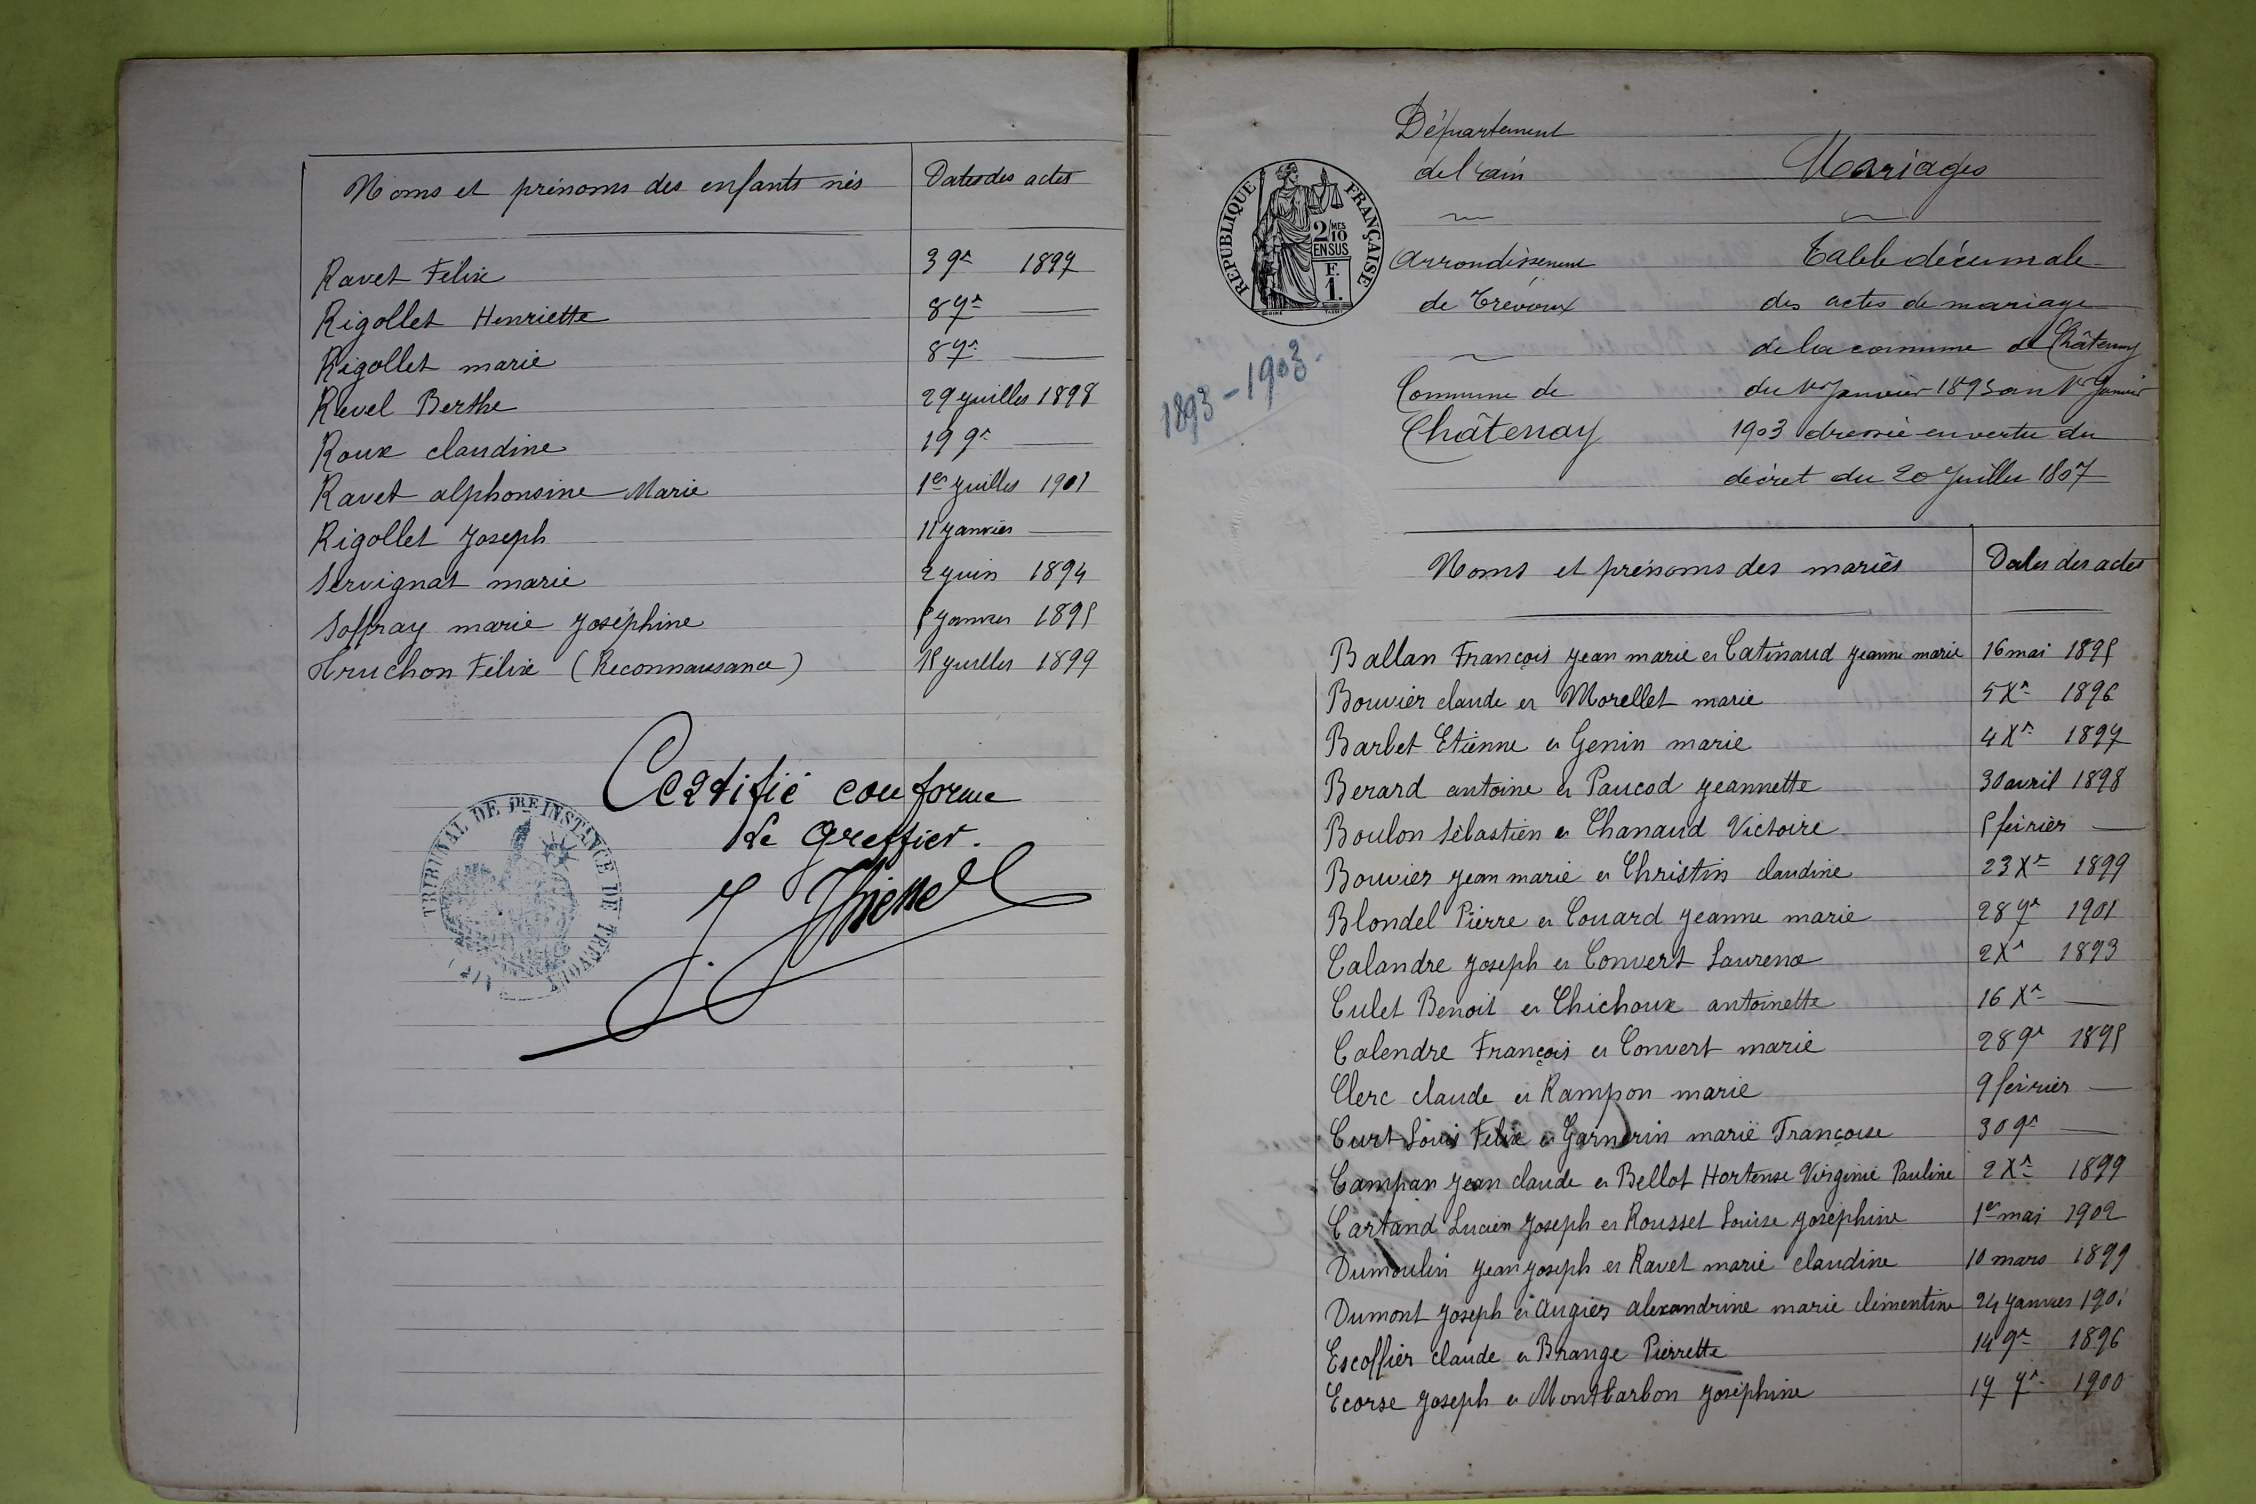 Noms et prénoms des enfants nés Dates des actes
Ravet Félix 3 9r 1897
Rigollet Henriette 8 7r —
Rigollet marie 8 7r —
Revel Berthe 29 juillet 1898
Roux claudine 19 9r —
Ravet alphonsine Marie 1er juillet 1901
Rigollet Joseph 11 janvier —
Servignat marie 2 juin 1894
Soffray marie Joséphine 5 janvier 1895
Truchon Félix (Reconnaissance) 15 juillet 1899
Certifié conforme
Le Greffier.
TRIBUNAL DE 1RE INSTANCE DE TRÉVOUX
(AIN)
Département
de l'ain
Mariages
REPUBLIQUE FRANÇAISE
2 MES 10
EN SUS
F.
1.
Arrondissement
de Trévoux
Table décennale
des actes de mariage
de la commune de Châtenay
1893-1903.
Commune de
Châtenay
du 1er Janvier 1893 au 1er Janvier
1903 dressée en vertu du
décret du 20 Juillet 1807
Noms et prénoms des mariés Dates des actes
Ballan François Jean marie et Catinaud Jeanne marie 16 mai 1895
Bouvier claude et Morellet marie 5 Xr 1896
Barbet Etienne et Genin marie 4 Xr 1897
Berard antoine et Paucod Jeannette 30 avril 1898
Boulon Sébastien et Chanaud Victoire 5 février —
Bouvier Jean marie et Christin claudine 23 Xr 1899
Blondel Pierre et Couard Jeanne marie 28 7r 1901
Calandre Joseph et Convert Laurence 2 Xr 1893
Culet Benoit et Chichoux antoinette 16 Xr —
Calendre François et Convert marie 28 9r 1895
Clerc claude et Rampon marie 9 février —
Curt Louis Felix et Garnerin marie Françoise 30 9r —
Campan Jean claude et Bellot Hortense Virginie Pauline 2 Xr 1899
Cartand Lucien Joseph et Rousset Louise Joséphine 1er mai 1902
Dumoulin Jean Joseph et Ravet marie claudine 10 mars 1899
Dumont Joseph et Augier alexandrine marie clémentine 24 janvier 1901
Escoffier claude et Brange Pierrette 14 9r 1896
Ecorse Joseph et Montbarbon Joséphine 17 7r 1900